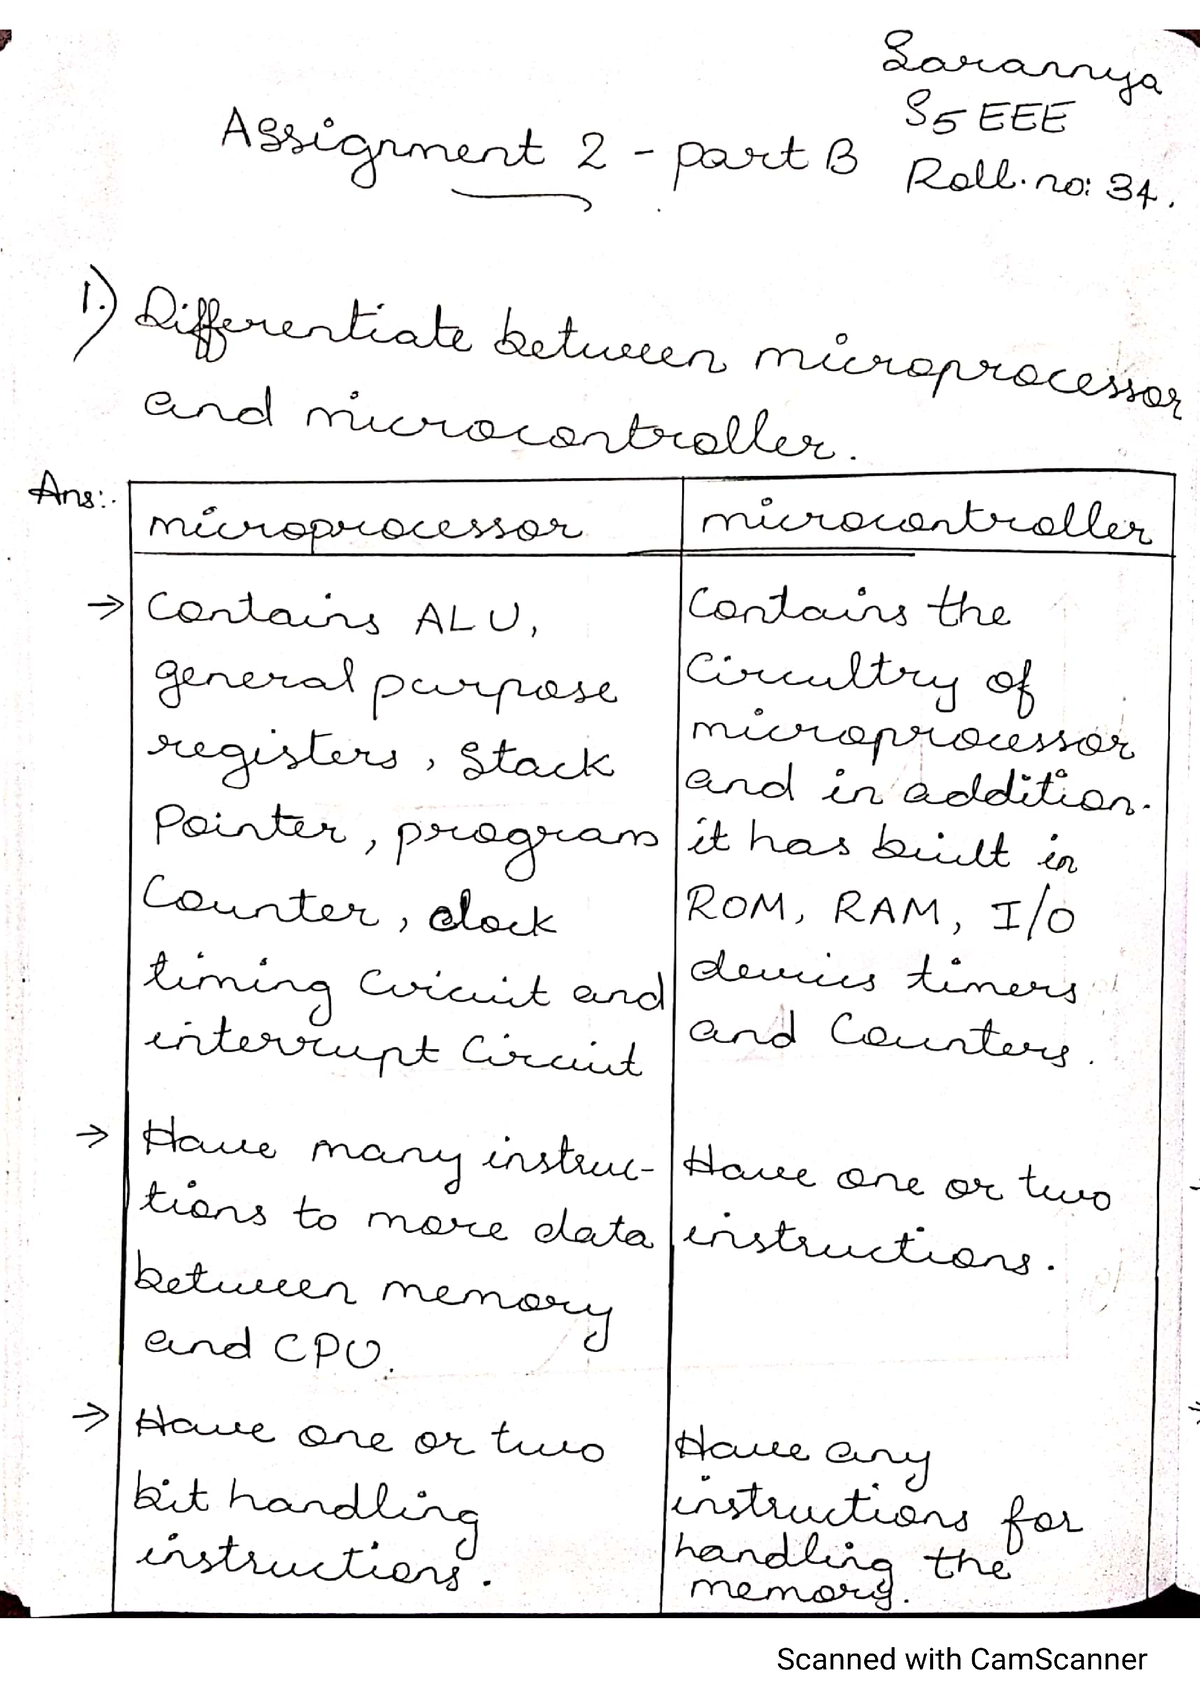 Sarannya
S5 EEE
Roll.no: 34.
Assignment 2 - part B
1.) Differentiate between microprocessor
and microcontroller.
Ans:-
microprocessor
→ Contains ALU,
general purpose
registers, Stack
Pointer, program
Counter, clock
timing circuit and
interrupt Circuit
→ Have many instruc-
tions to more data
between memory
and CPU.
→ Have one or two
bit handling
instructions.
microcontroller
Contains the
Circuitry of
microprocessor
and in addition.
it has built in
ROM, RAM, I/O
devices timers
and Counters.
Have one or two
instructions.
Have any
instructions for
handling the
memory.
Scanned with CamScanner